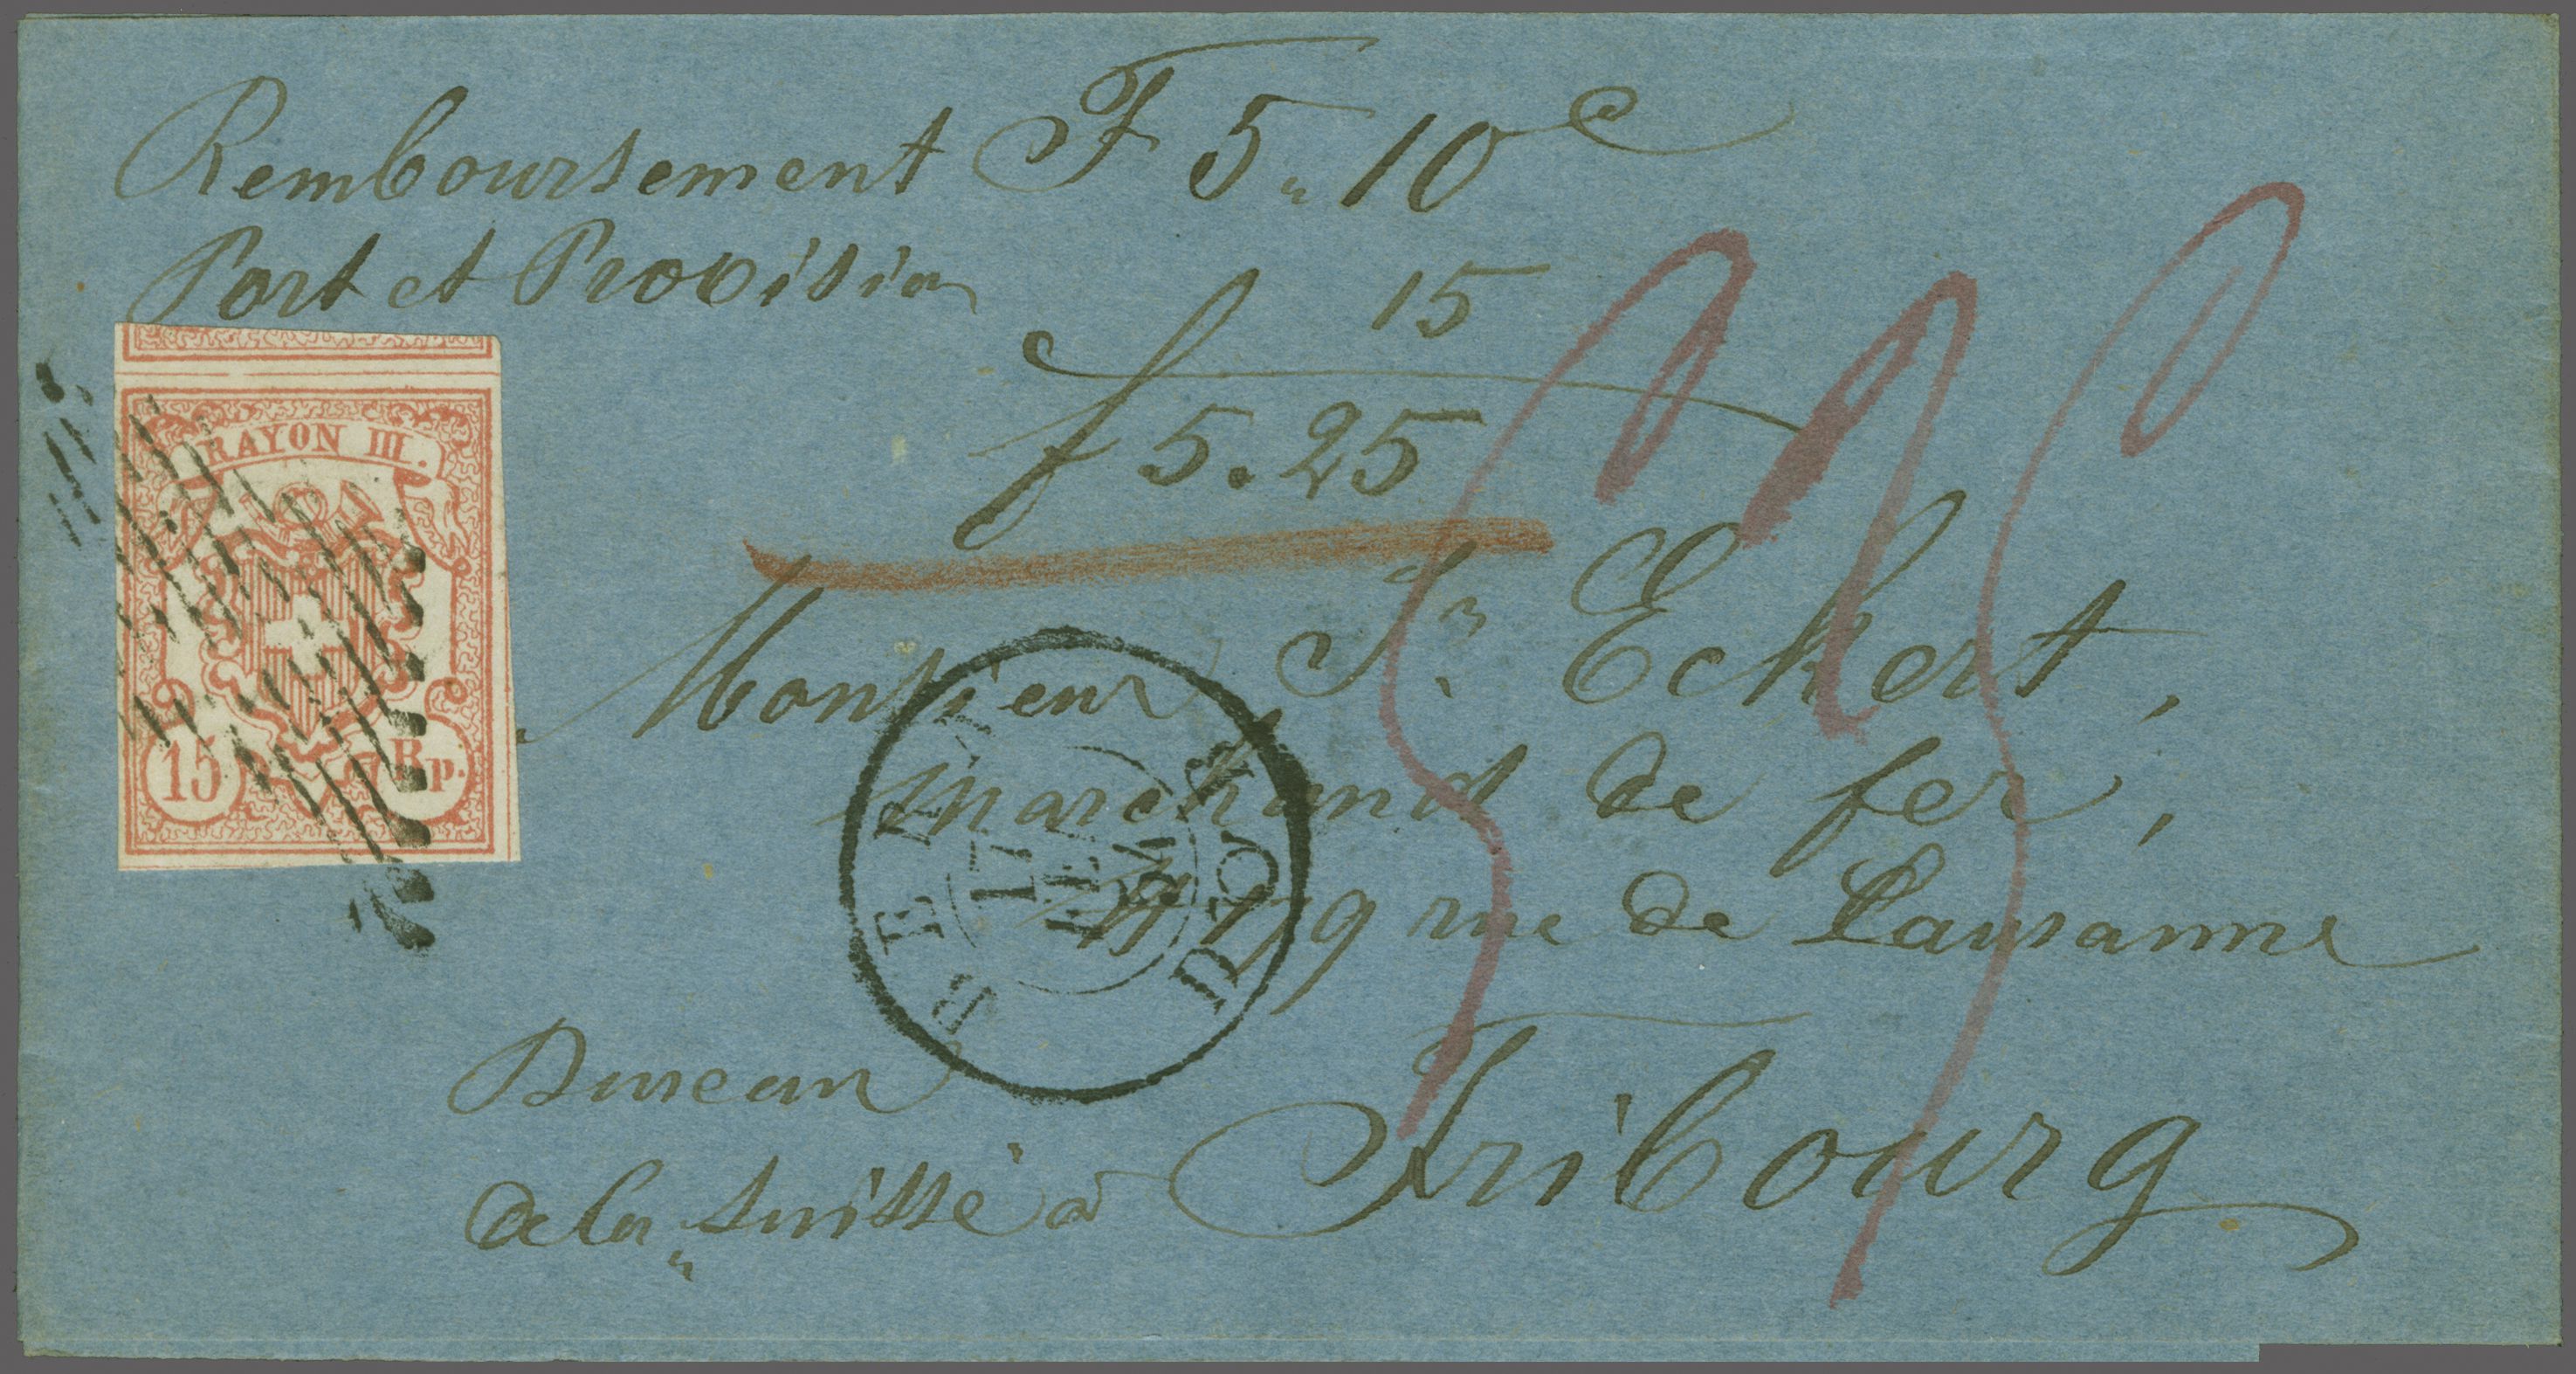 Remboursement F 5 " 10 c
Port et Provision 15
f 5.25
RAYON III.
15 Rp.
Monsieur Jn Eckert,
marchand de fer,
179 rue de Lausanne
BERN
17
FEBR
Bureau
de la Suisse à Fribourg